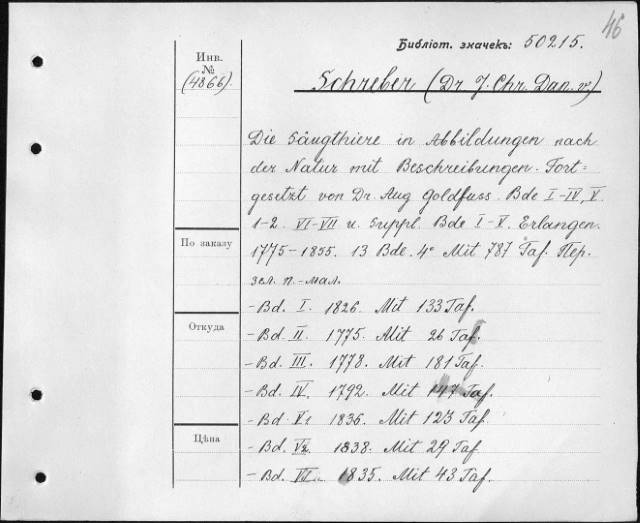 46
Библіот. значекъ: 50215.
Инв.
№
(4866).
Schreber (Dr J. Chr. Dan. v.)
Die Säugthiere in Abbildungen nach
der Natur mit Beschreibungen. Fort=
gesetzt von Dr. Aug Goldfuss. Bde I–IV, V.
1–2. VI–VII u. Suppl. Bde I–V. Erlangen.
По заказу
1775–1855. 13 Bde. 4° Mit 787 Taf. Пер.
зел. п.-мал.
– Bd. I. 1826. Mit 133 Taf.
Откуда
– Bd. II. 1775. Mit 26 Taf.
– Bd. III. 1778. Mit 181 Taf.
– Bd. IV. 1792. Mit 147 Taf.
– Bd. V1 1836. Mit 123 Taf.
Цѣна
– Bd. V2. 1838. Mit 29 Taf
– Bd. VI. 1835. Mit 43 Taf.